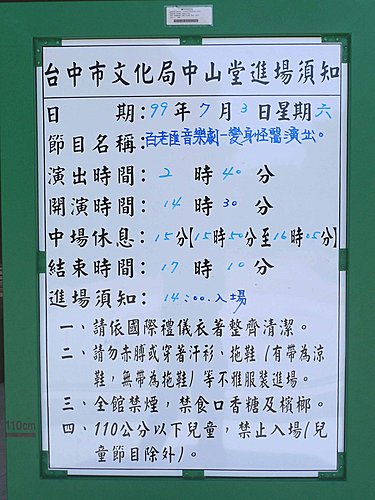 台中市文化局中山堂進場須知
日期：99年7月3日星期六
節目名稱：百老匯音樂劇-變身怪醫演出。
演出時間：2時40分
開演時間：14時30分
中場休息：15分【15時50分至16時05分】
結束時間：17時10分
進場須知：14:00.入場
一、請依國際禮儀衣著整齊清潔。
二、請勿赤膊或穿著汗衫、拖鞋(有帶為涼
鞋，無帶為拖鞋)等不雅服裝進場。
三、全館禁煙，禁食口香糖及檳榔。
四、110公分以下兒童，禁止入場(兒
童節目除外)。
110cm